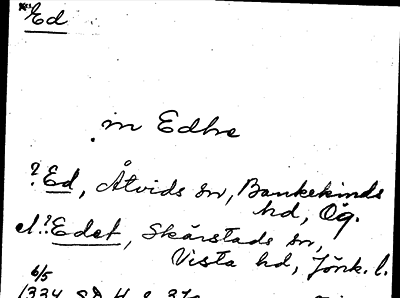 *Ed
in Edhe
?Ed, Åtvids sn, Bankekinds
hd, Ög.
el.?Edet, Skärstads sn,
Vista hd, Jönk. l.
6/5
1334